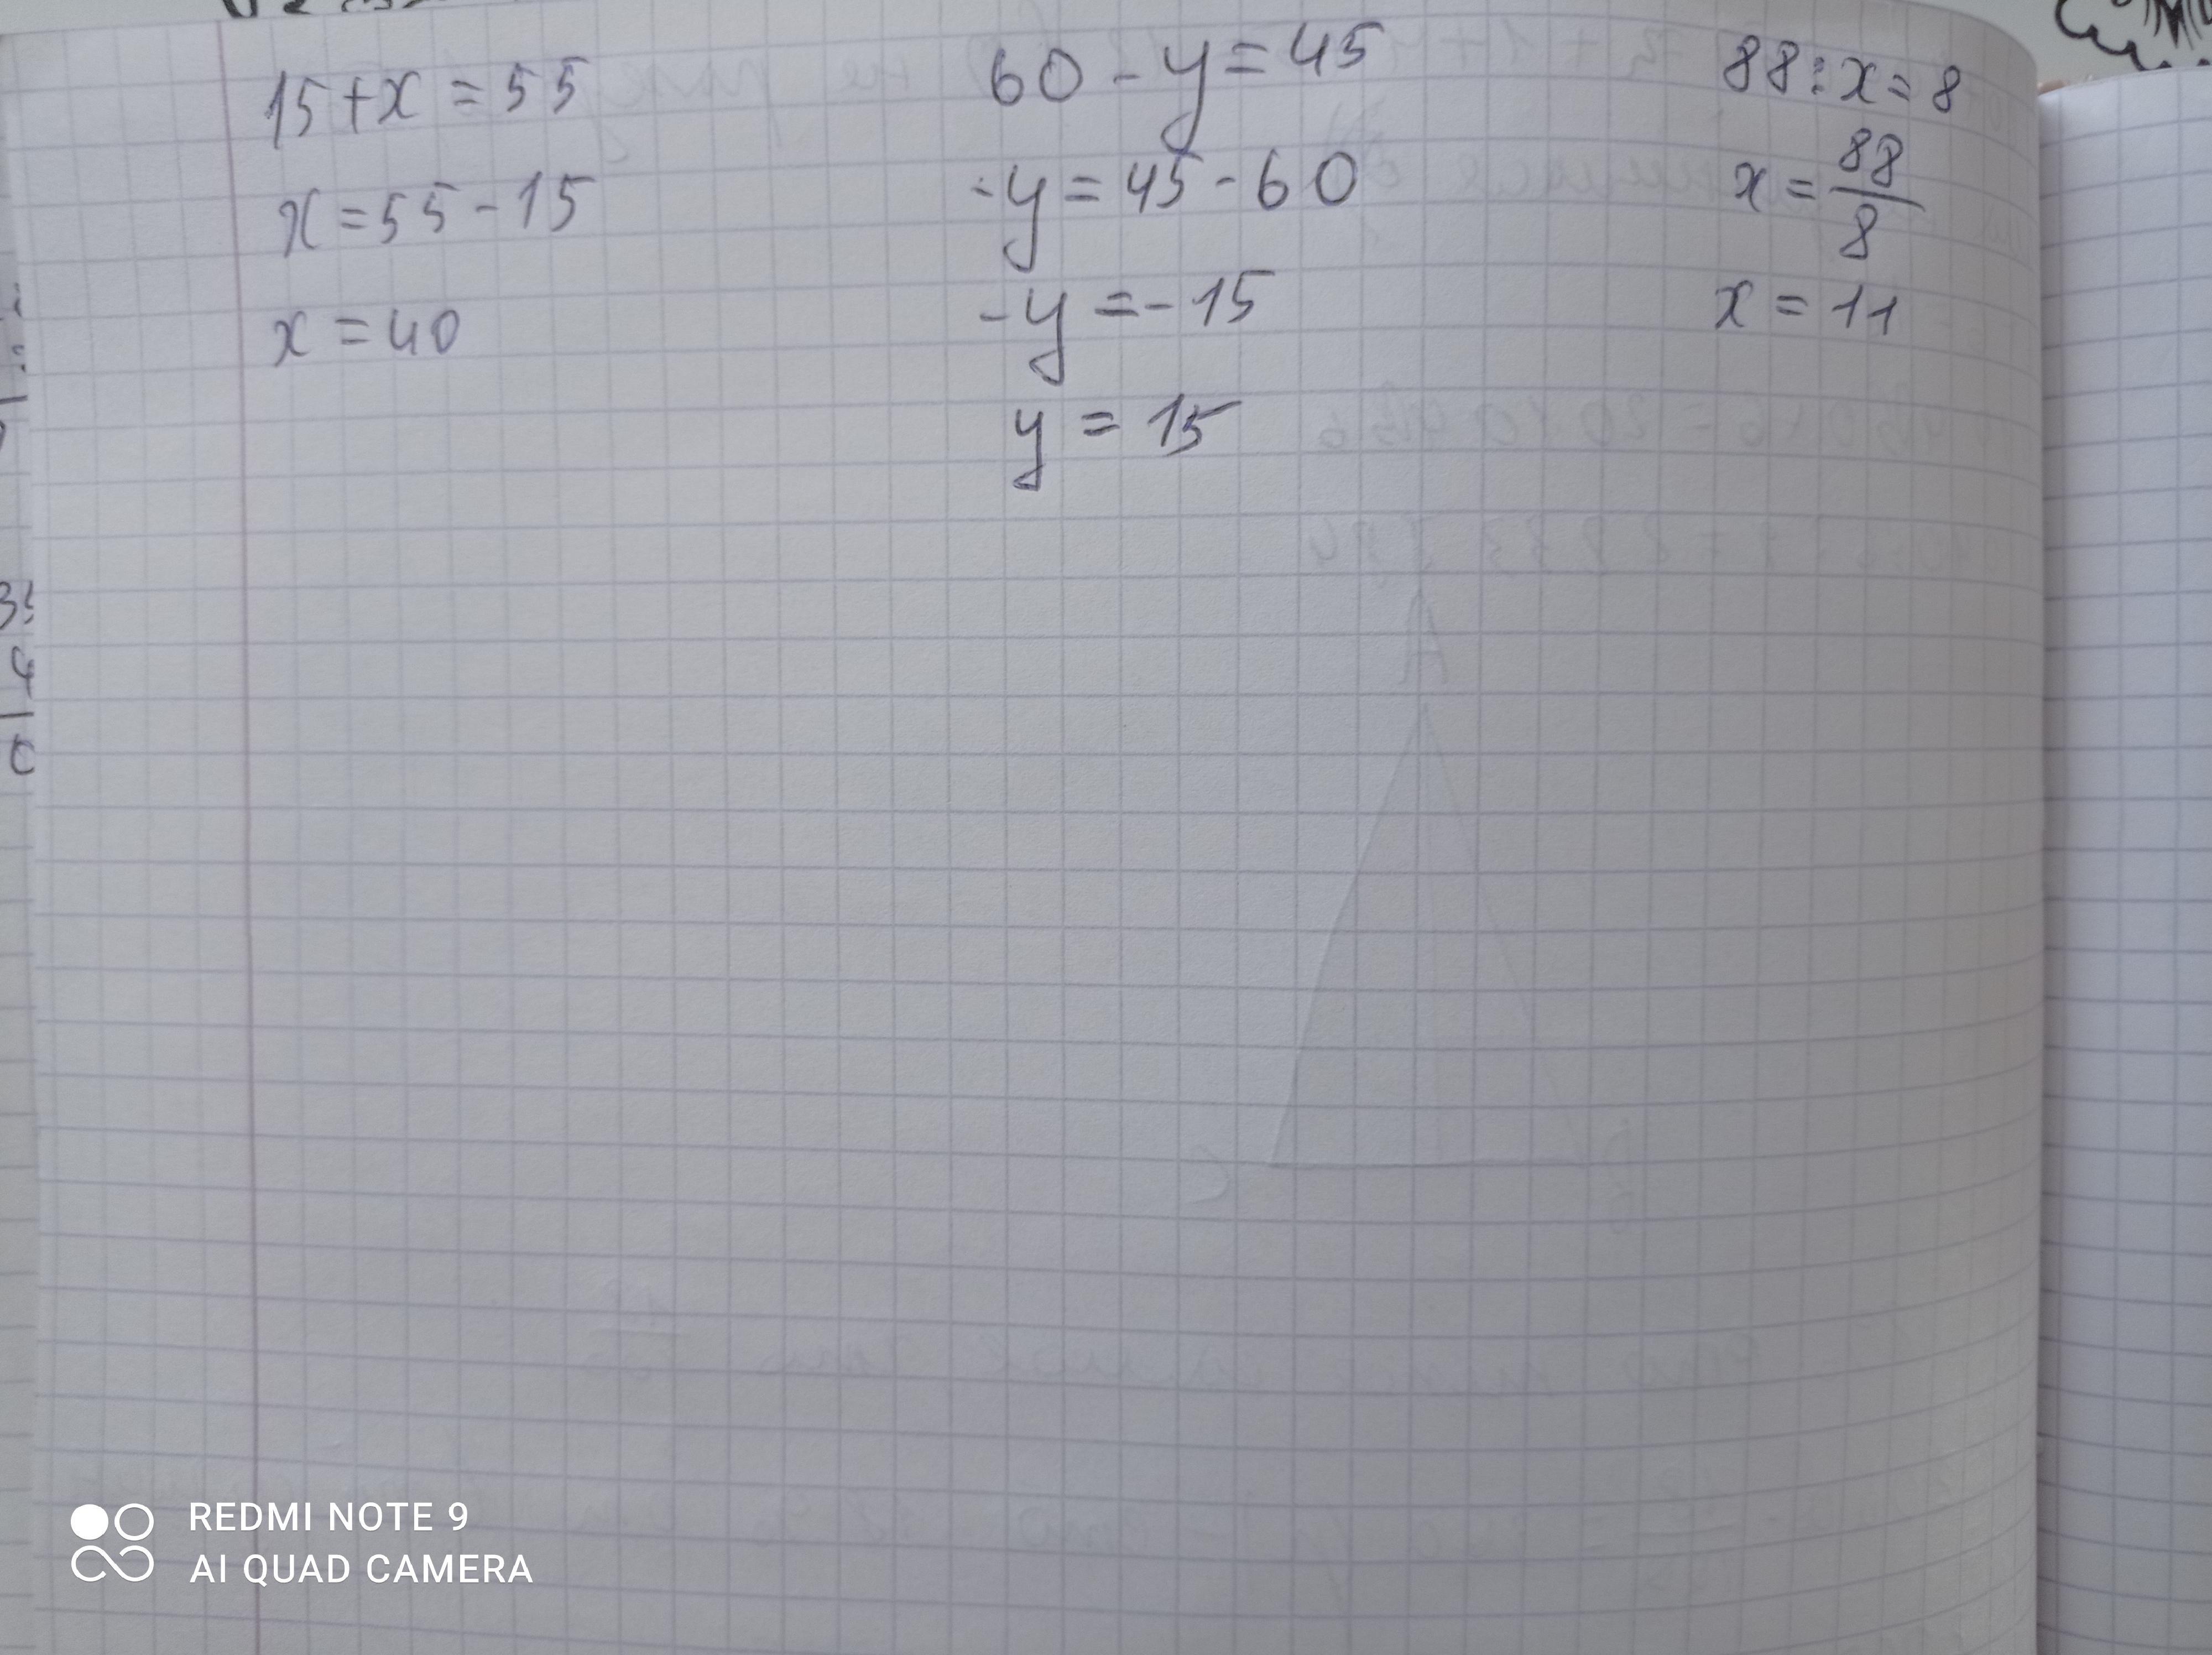 15+x=55
x=55-15
x=40
60-y=45
-y=45-60
-y=-15
y=15
88:x=8
x=88/8
x=11
REDMI NOTE 9
AI QUAD CAMERA